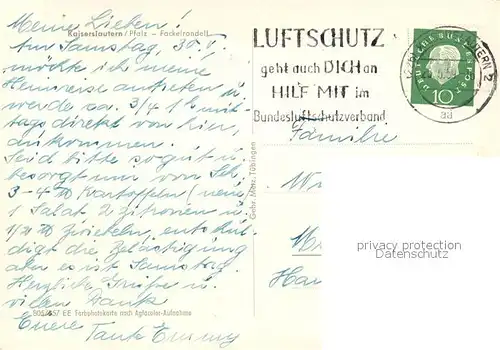 Meine Lieben!
Kaiserslautern/Pfalz - Fackelrondell
Am Samstag, 30.
möchte ich meine
Heimreise antreten u.
werde ca. 3/4 1 mit-
tags direkt von hier,
ankommen.
Seid bitte so gut u.
besorgt mir vom
3-4 ℔ Kartoffeln (neue)
1 Salat 2 Zitronen u.
1/2 ℔ Zwiebeln, entschul-
digt die Belästigung
aber es ist Samstag.
Herzliche Grüße u.
vielen Dank
805/457 EE Farbphotokarte nach Agfacolor-Aufnahme
Eure
Tante Emmy
Gebr. Metz, Tübingen
LUFTSCHUTZ
geht auch DICH an
HILF MIT im
Bundesluftschutzverband
DEUTSCHE BUNDESPOST
10
ad
Familie
privacy protection
www.oldthing.de